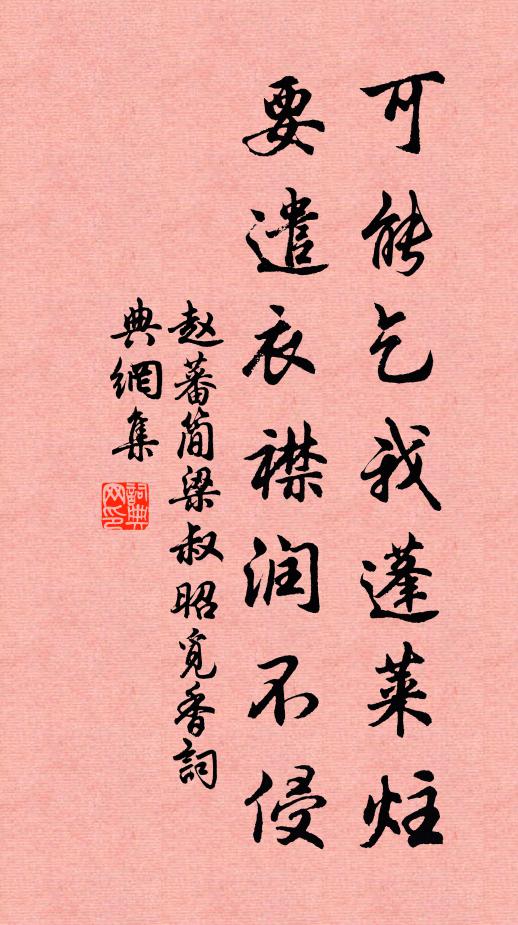 可能乞我蓬莱炷
要遣衣襟润不侵
赵蕃简梁叔昭觅香詞
典網集
詞典
网印